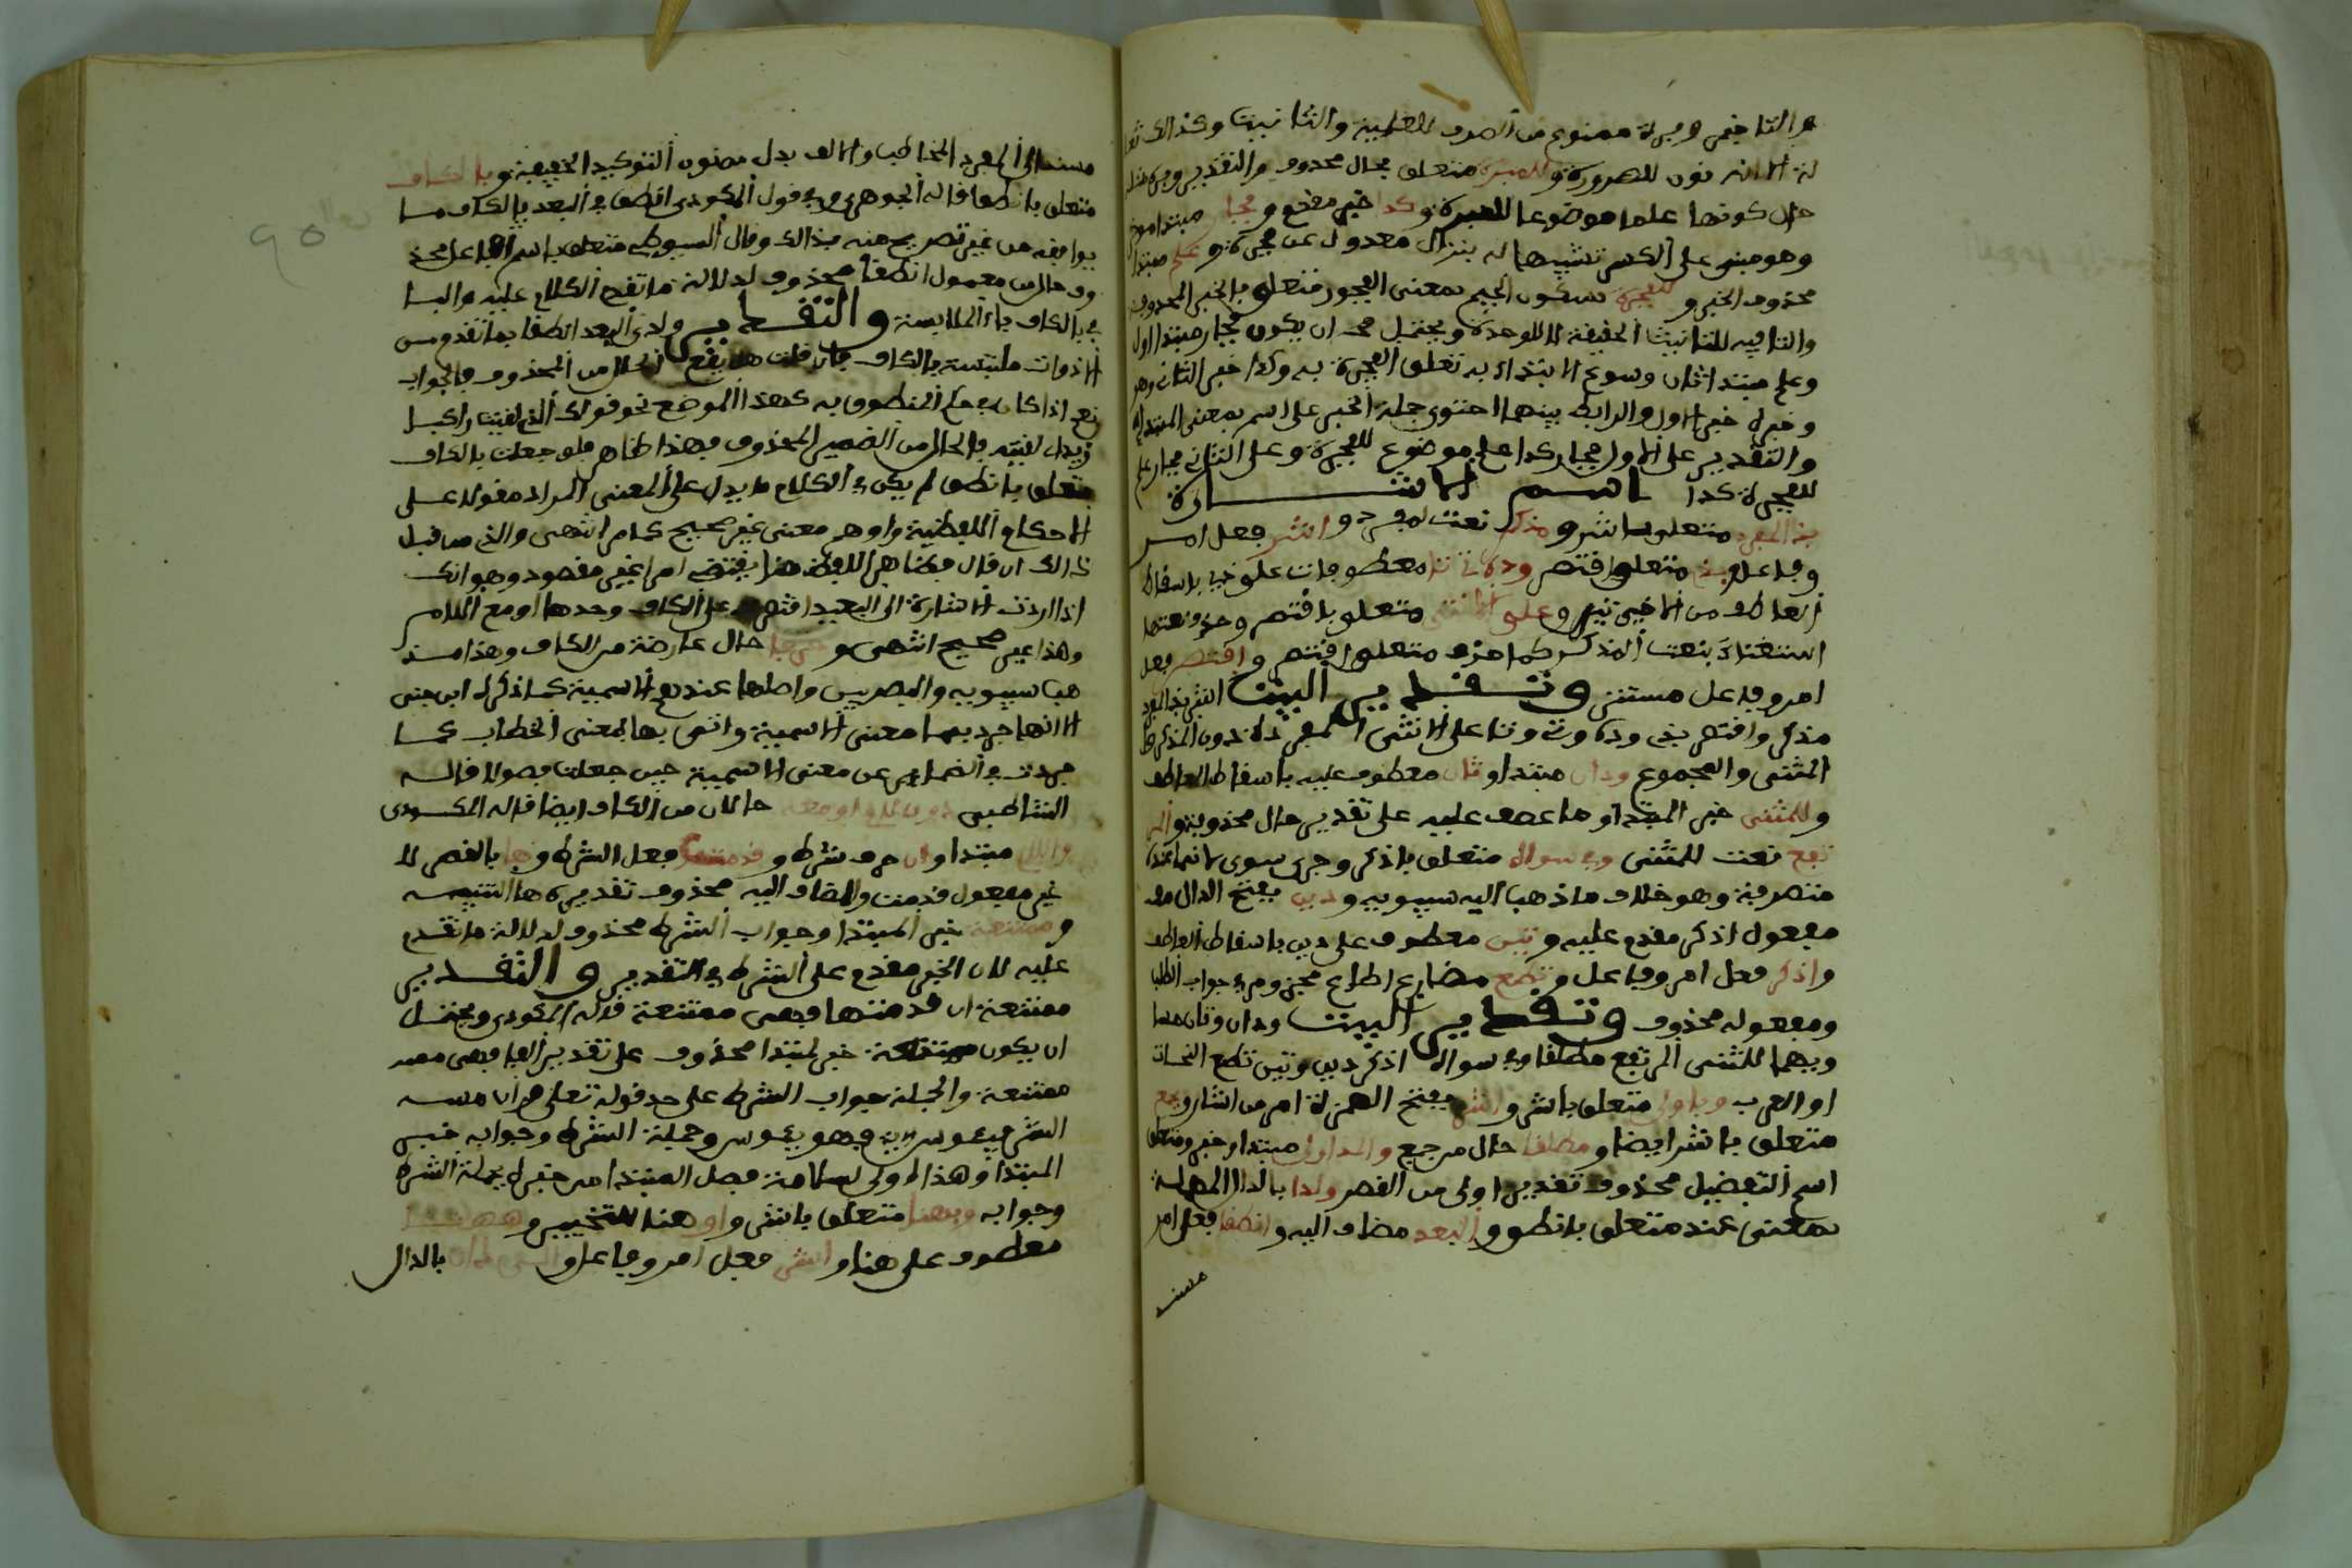 خبر وبرة ممنوع من الصرف للعلمية والتانيث وكذالك
نون للضرورة وللمبرة متعلق بحال محذوف والتقدير وبرة
حال كونها علما موضوعا للمبرة وكذا خبر مقدم وفجار مبتدا موخر
وهو مبني على الكسر تشبيها له بنزال معدول عن فجرة وعلم مبتدا
محذوف الخبر وللفجرة بسكون الجيم بمعنى الفجور متعلق بالخبر المحذوف
والتا فيه للتانيث الحقيقة لا للوحدة ويحتمل ان يكون فجار مبتدا اول
وعلم مبتدا ثان وسوغ الابتداء به تعلق الفجرة به وكذا خبر الثاني وهو
وخبره خبر الاول والرابط بينهما احتوى جملة الخبر على اسم بمعنى المبتدا
والتقدير على الاول فجار كذا علم موضوع للفجرة وعلى الثاني فجار علم
للفجرة كذا اسم الاشارة
بذا لمفرد متعلق باشر ومذكر نعت لمفرد واشر فعل امر
وفاعل وبذي متعلق باقتصر وذه تي تا معطوفات على ذي باسقاط
العاطف من الاخيرتين وعلى الانثى متعلق باقتصر وحذف نعتها
استغناء بنعت المذكر كما حذف متعلق اقتصر واقتصر فعل
امر وفاعل مستتر وتقدير البيت اشر بذا لمفرد
مذكر واقتصر بذي وذه وتي وتا على الانثى المفردة دون المذكر
المثنى والمجموع وذان مبتدا وتان معطوف عليه باسقاط العاطف
وللمثنى خبر المبتدا وما عطف عليه على تقدير حال محذوفة والمر
تفع نعت للمثنى وفي سواه متعلق باذكر وجر سوى لانها عنده
متصرفة وهو خلاف ما ذهب اليه سيبويه وذين بفتح الذال
مفعول اذكر مقدم عليه وتين معطوف على ذين باسقاط العاطف
واذكر فعل امر وفاعل وتطع مضارع اطاع مجزوم في جواب الطلب
ومفعوله محذوف وتقدير البيت وذان وتان هما
وبهما للمثنى المرتفع مطلقا وفي سواه اذكر ذين وتين تطع النحات
او العرب وباولى متعلق باشر واشر بفتح الهمزة امر من اشار ولجمع
متعلق باشر ايضا ومطلقا حال من جمع والمد اولى مبتدا وخبر ومتعلق
اسم التفضيل محذوف تقديره اولى من القصر ولدا بالدال المهملة
بمعنى عند متعلق بانطق والبعد مضاف اليه وانطقا فعل امر
مسند
مسند الى المفرد المخاطب والالف بدل من نون التوكيد الخفيفة وبالكاف
متعلق بانطقا قاله الجوهري وفي قول المكودي انطق في البعد بالكاف ما
يوافقه من غير تصريح منه بذالك وقال السيوطي متعلق باسم فاعل محذ
وف حال من معمول انطقا محذوف لدلالة ما تقدم الكلام عليه والبا
في بالكاف باء الملابسة والتقدير ولدى البعد انطقا بما تقدم من
الادوات ملتبسة بالكاف فان قلت هل يقع الحال من المحذوف فالجواب
نعم اذا كان في حكم المنطوق به كهذا الموضع نحو قولك الذي لقيت راكبا
زيد اي لقيته فالحال من الضمير المحذوف وهذا ظاهر فلو جعلت بالكاف
متعلق بانطق لم يكن في الكلام ما يدل على المعنى المراد مفولا على
الاحكام اللفظية واوهم معنى غير صحيح كما مر انتهى والذي مر قبل
ذالك ان قال فظاهر اللفظ هنا يقتضي امرا غير مقصود وهو انك
اذا اردت الاشارة الى البعيد اقتصر على الكاف وحدها او مع اللام
وهذا غير صحيح انتهى وحرفا حال عارضة من الكاف وهذا مذ
هب سيبويه والبصريين واصلها عندهم الاسمية كما ذكره ابن جني
الا انها جرد منها معنى الاسمية واتى بها لمعنى الخطاب كما
جردت الضماير عن معنى الاسمية حين جعلت فصولا قاله
الشاطبي دون لام او معه حالان من الكاف ايضا قاله المكودي
واللام مبتدا وان حرف شرط وقدمت فعل الشرط وها بالقصر لا
غير مفعول قدمت والمضاف اليه محذوف تقديره ها التنبيه
وممتنعة خبر المبتدا وجواب الشرط محذوف لدلالة ما تقدم
عليه لان الخبر مقدم على الشرط في التقدير والتقدير
ممتنعة ان قدمتها فهي ممتنعة قاله المكودي ويحتمل
ان يكون ممتنعة خبر لمبتدا محذوف على تقدير الفا فهي
ممتنعة والجملة جواب الشرط على حد قوله تعلى وان مسه
الشر فيئوس اي فهو يئوس وجملة الشرط وجوابه خبر
المبتدا وهذا اولى لسلامته فصل المبتدا من خبره بجملة الشرط
وجوابه وبهنا متعلق باشر واو هنا للتخيير وههنا
معطوف على هنا واشر فعل امر وفاعل والى داني بالدال